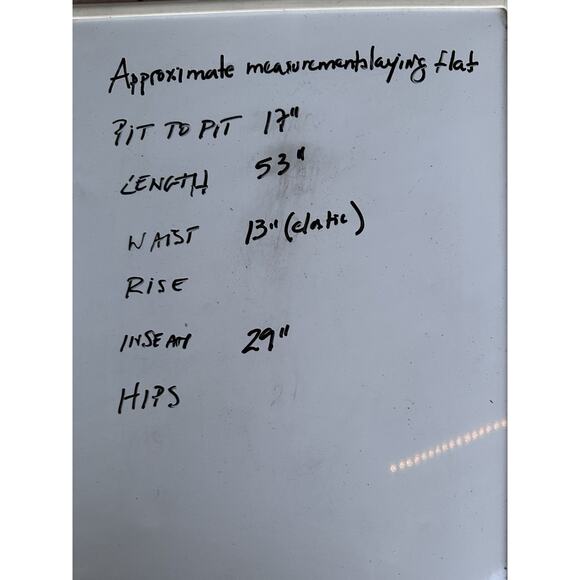 Approximate measurements laying flat
PIT TO PIT 17"
LENGTH 53"
WAIST 13" (elastic)
RISE
INSEAM 29"
HIPS